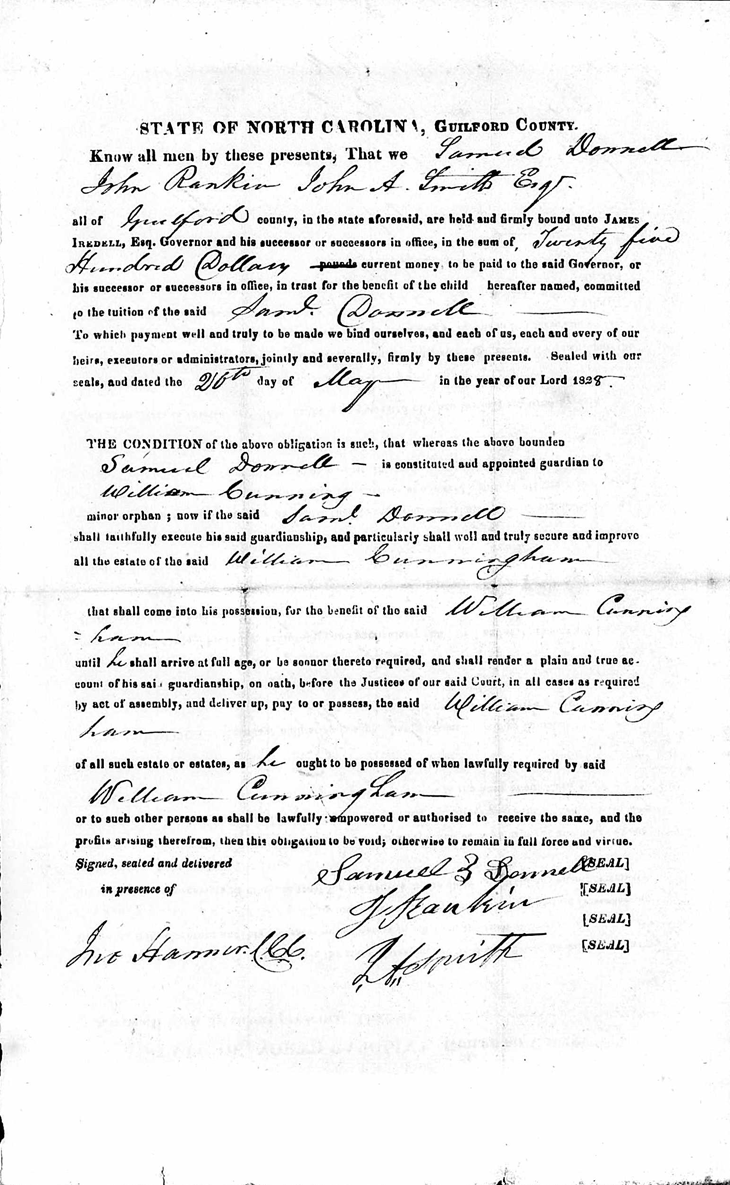 STATE OF NORTH CAROLINA, GUILFORD COUNTY.
Know all men by these presents, That we Samuel Donnell
John Rankin John A. Smith Esqr.
all of Guilford county, in the state aforesaid, are held and firmly bound unto JAMES
IREDELL, Esq. Governor and his successor or successors in office, in the sum of, Twenty five
Hundred Dollars pounds current money to be paid to the said Governor, or
his successor or successors in office, in trust for the benefit of the child hereafter named, committed
to the tuition of the said Saml. Donnell
To which payment well and truly to be made we bind ourselves, and each of us, each and every of our
heirs, executors or administrators, jointly and severally, firmly by these presents. Sealed with our
seals, and dated the 20th day of May in the year of our Lord 1828
THE CONDITION of the above obligation is such, that whereas the above bounden
Samuel Donnell is constituted and appointed guardian to
William Cunning
minor orphan; now if the said Saml Donnell
shall faithfully execute his said guardianship, and particularly shall well and truly secure and improve
all the estate of the said William Cunningham
that shall come into his possession, for the benefit of the said William Cunning
= ham
until he shall arrive at full age, or be sonnor thereto required, and shall render a plain and true ac-
count of his said guardianship, on oath, before the Justices of our said Court, in all cases as required
by act of assembly, and deliver up, pay to or possess, the said William Cunning
ham
of all such estate or estates, as he ought to be possessed of when lawfully required by said
William Cunningham
or to such other persons as shall be lawfully empowered or authorised to receive the same, and the
profits arising therefrom, then this obligation to be void; otherwise to remain in full force and virtue.
Signed, sealed and delivered Samuel Donnell [SEAL]
in presence of J Rankin [SEAL]
[SEAL]
Jno Hanner. J. A. Smith [SEAL]